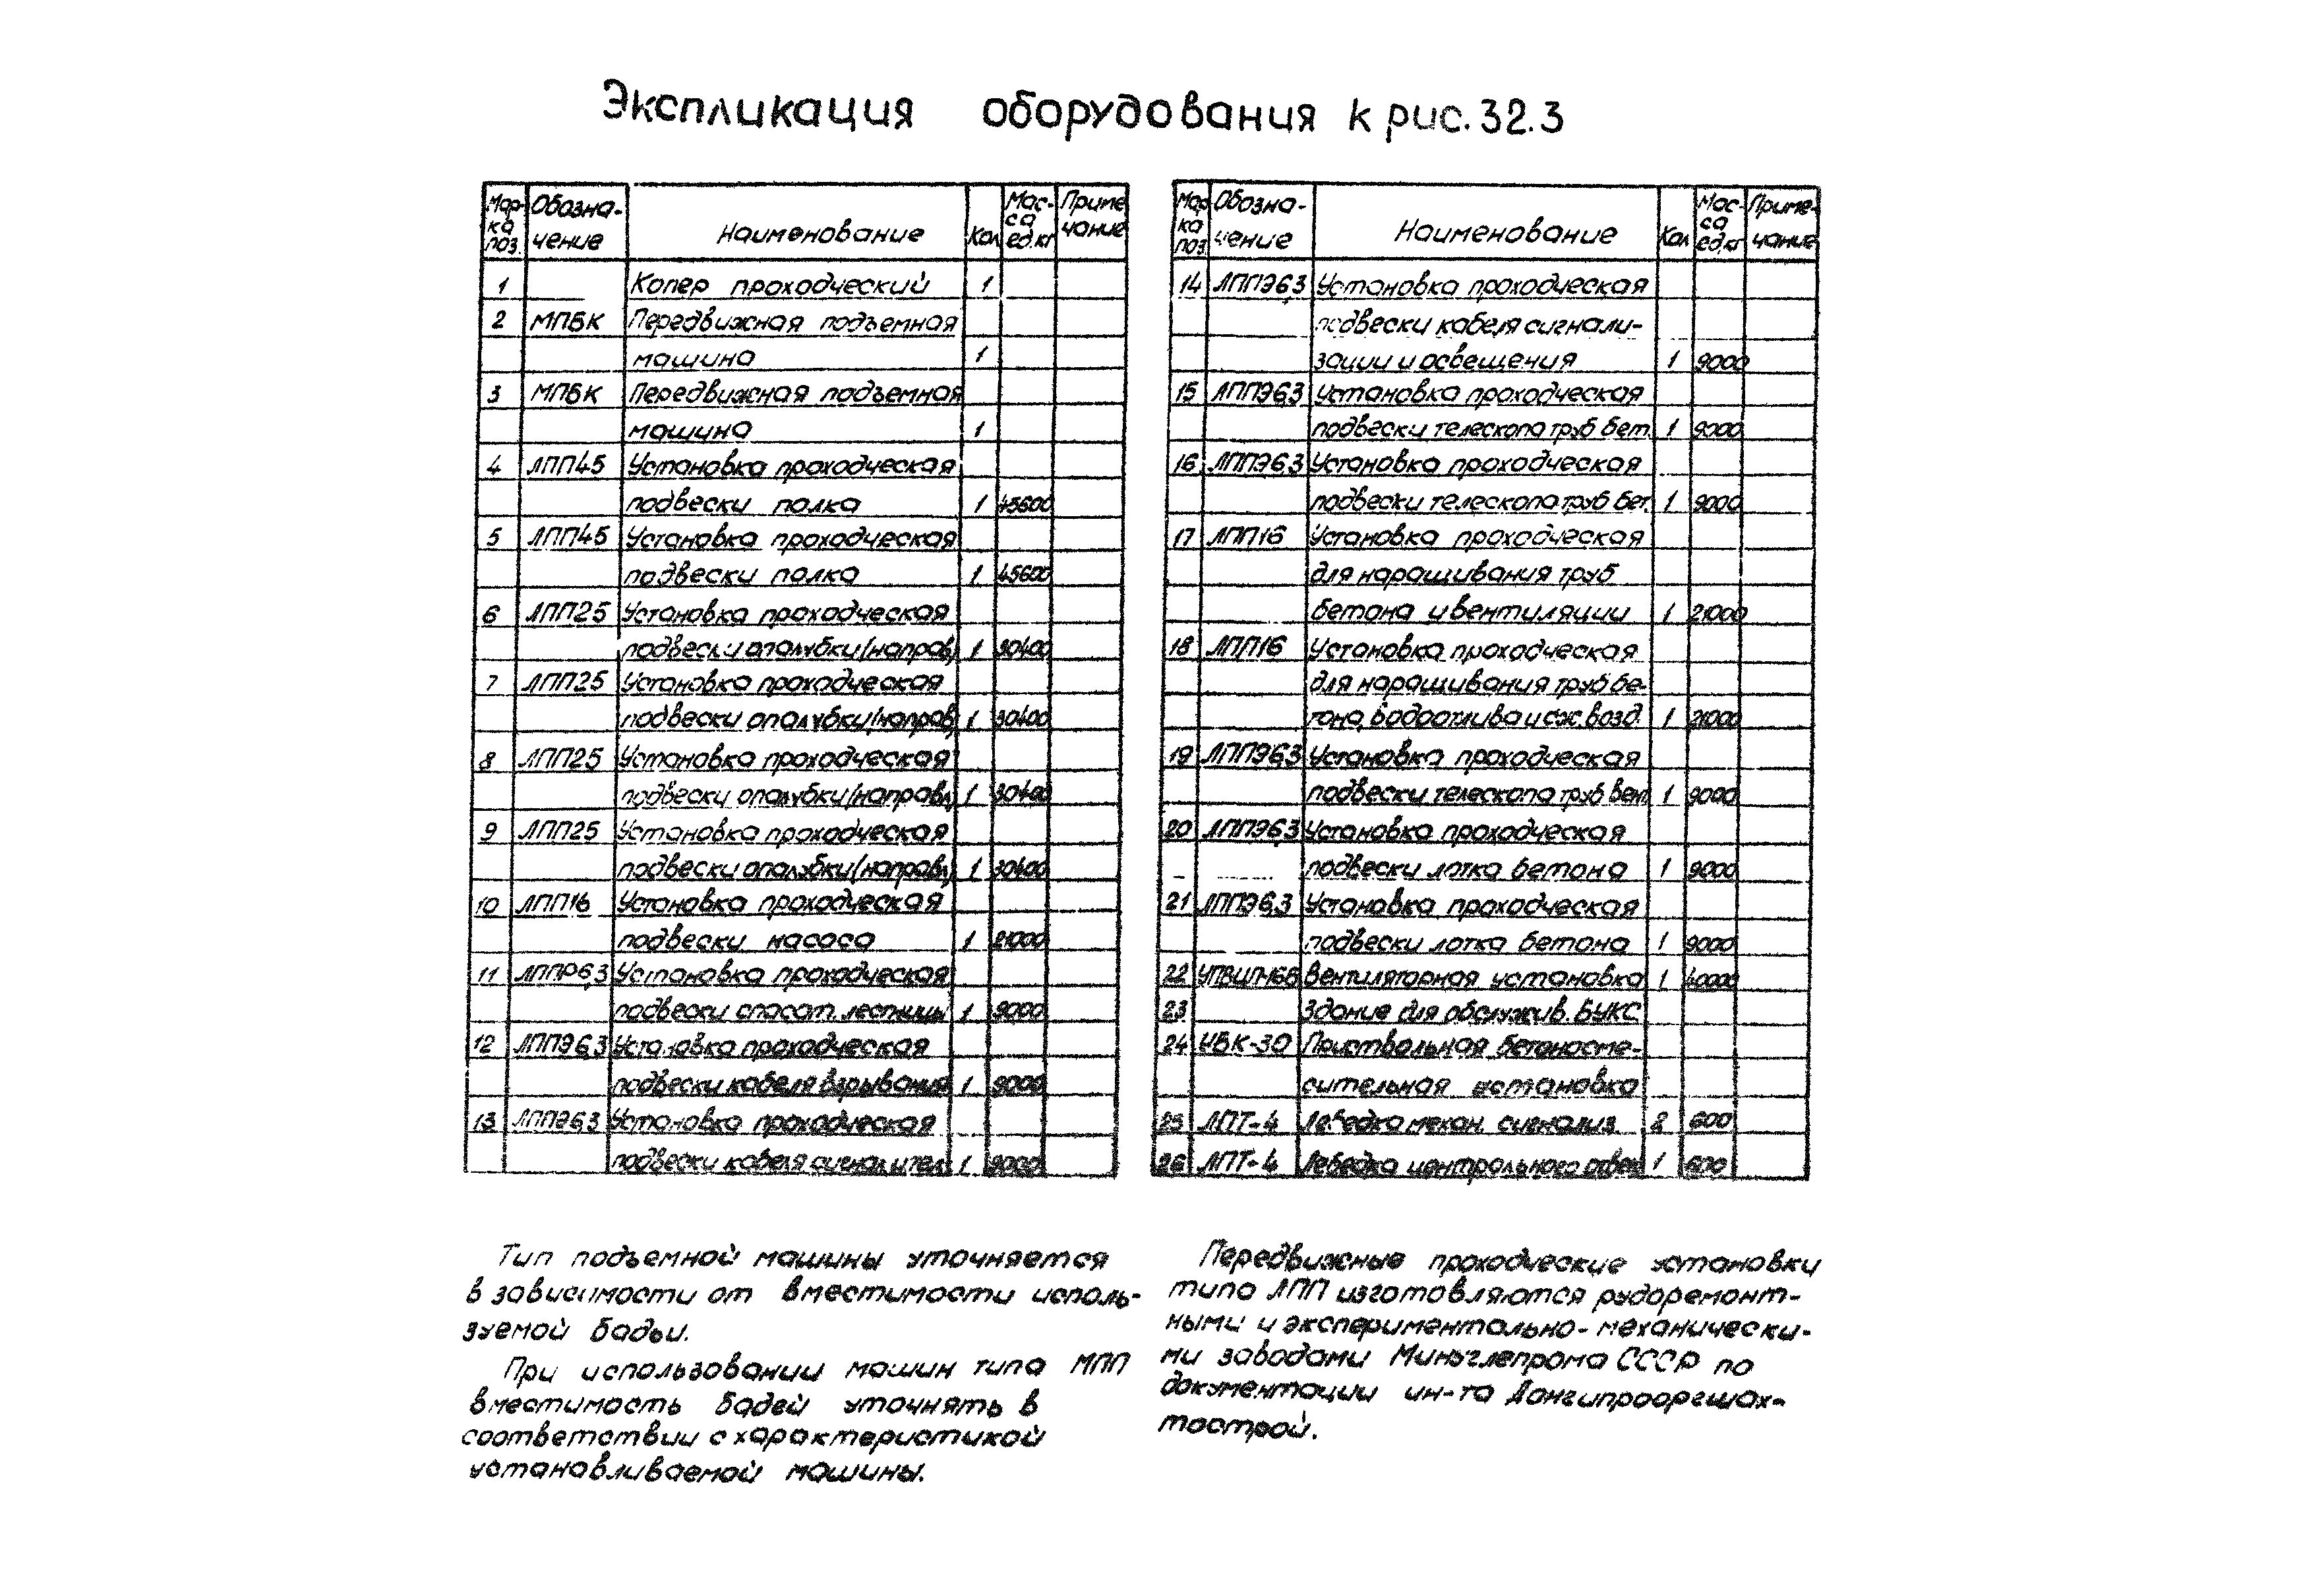 Экспликация оборудования к рис. 32.3
Мар- Обозна- Наименование Кол Мас- Приме
ка чение са чание
поз. ед.кг
1 Копер проходческий 1
2 МПБК Передвижная подъемная
машина 1
3 МПБК Передвижная подъемная
машина 1
4 ЛПП45 Установка проходческая
подвески полка 1 45600
5 ЛПП45 Установка проходческая
подвески полка 1 45600
6 ЛПП25 Установка проходческая
подвески опалубки (направ) 1 30400
7 ЛПП25 Установка проходческая
подвески опалубки (направ) 1 30400
8 ЛПП25 Установка проходческая
подвески опалубки (направл) 1 30400
9 ЛПП25 Установка проходческая
подвески опалубки (направл) 1 30400
10 ЛПП16 Установка проходческая
подвески насоса 1 21000
11 ЛППР6,3 Установка проходческая
подвески спасат. лестницы 1 9000
12 ЛППЭ6,3 Установка проходческая
подвески кабеля взрывания 1 9000
13 ЛППЭ6,3 Установка проходческая
подвески кабеля 1 9000
Мар Обозна- Наименование Кол Мас- Приме-
ка чение са чание
поз. ед.кг
14 ЛППЭ6,3 Установка проходческая
подвески кабеля сигнали-
зации и освещения 1 9000
15 ЛППЭ6,3 Установка проходческая
подвески телескопа труб бет. 1 9000
16 ЛППЭ6,3 Установка проходческая
подвески телескопа труб бет. 1 9000
17 ЛПП16 Установка проходческая
для наращивания труб
бетона и вентиляции 1 21000
18 ЛПП16 Установка проходческая
для наращивания труб бе-
тона, водоотлива и сж. возд. 1 21000
19 ЛППЭ6,3 Установка проходческая
подвески телескопа труб вент 1 9000
20 ЛППЭ6,3 Установка проходческая
подвески лотка бетона 1 9000
21 ЛППЭ6,3 Установка проходческая
подвески лотка бетона 1 9000
22 Вентиляторная установка 1 40000
23 Здание для обслужив. БУКС
24 УБК-30 Приствольная бетоносме-
сительная установка
25 ЛПТ-4 Лебедка механ. сигнализ. 2 600
26 ЛПТ-4 Лебедка центрального отвеса 1 600
Тип подъемной машины уточняется
в зависимости от вместимости исполь-
зуемой бадьи.
При использовании машин типа МПП
вместимость бадей уточнять в
соответствии с характеристикой
устанавливаемой машины.
Передвижные проходческие установки
типа ЛПП изготовляются рудоремонт-
ными и экспериментально-механически-
ми заводами Минуглепрома СССР по
документации ин-та Донгипрооргшах-
тострой.